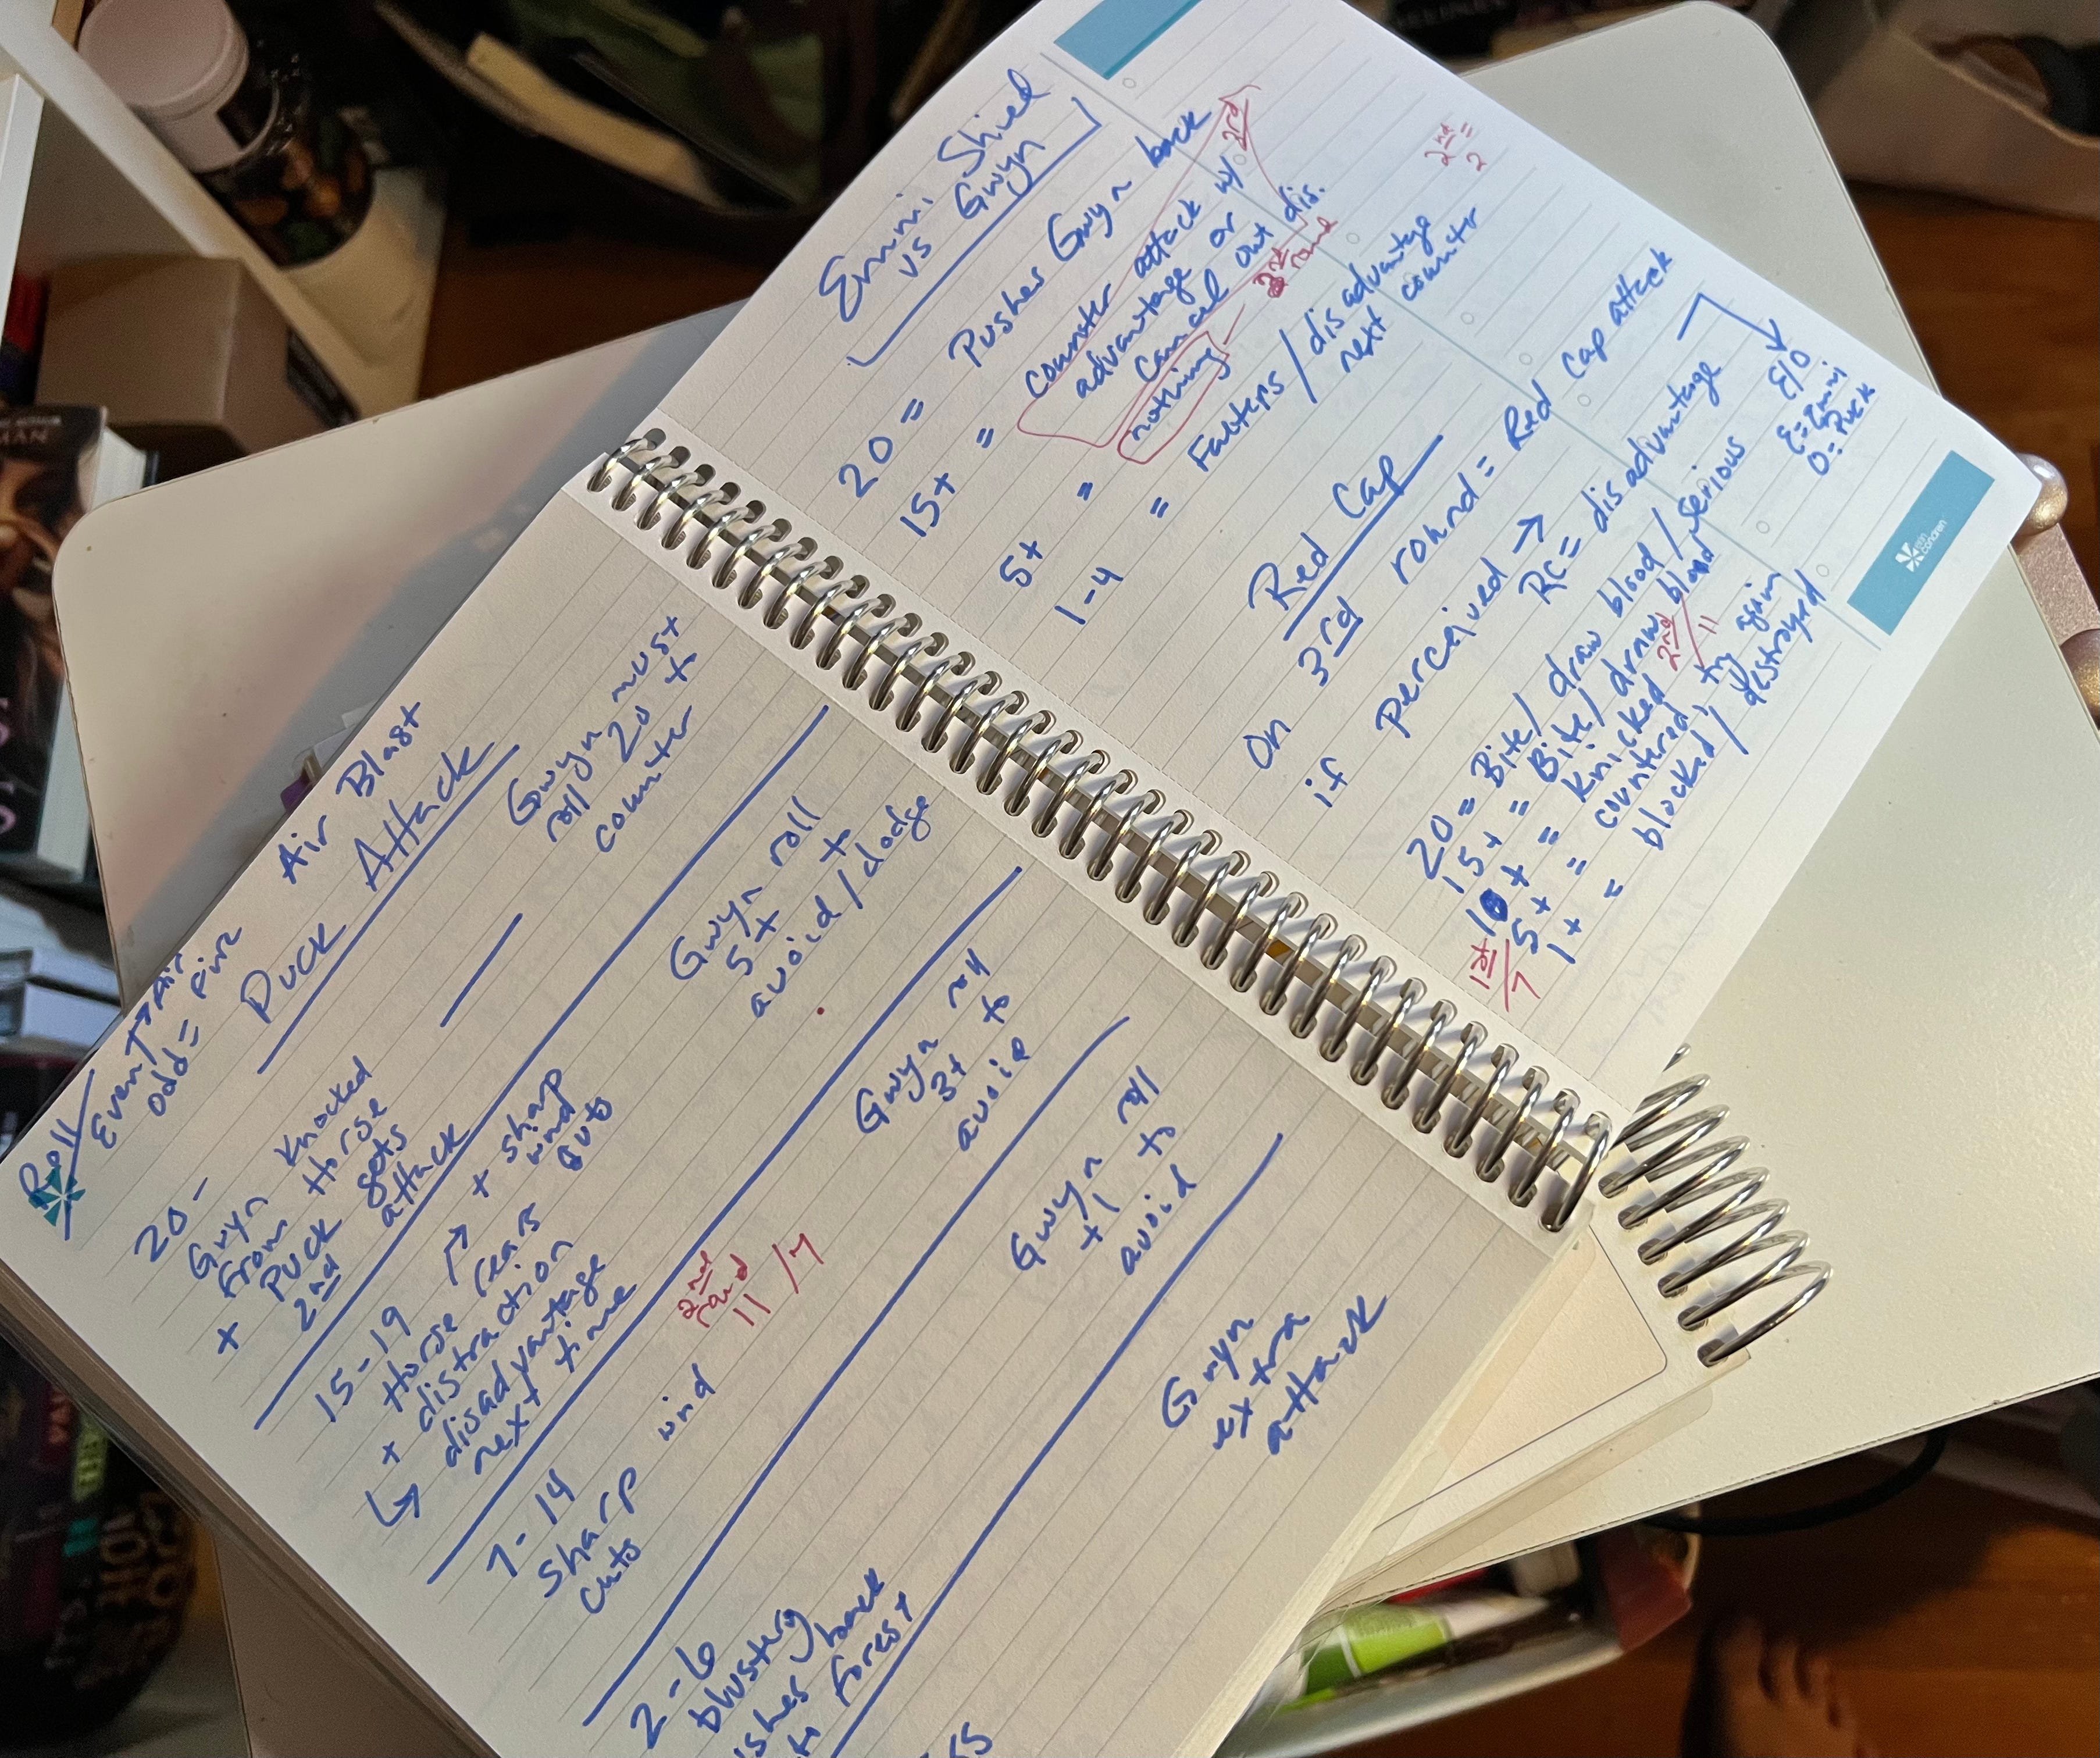 Emmi Shied
vs Gwyn
20 = Pushes Gwyn back
15+ = counter attack w/ 2nd
advantage or
cancel out dis.
5+ = nothing 2nd round
1-4 = Falters / disadvantage
next counter
2nd =
2
Red Cap
On 3rd round = Red Cap attack
if perceived →
RC = disadvantage
E/O
E = Emmi
O = Puck
20 = Bite / draw blood / serious
15+ = Bite / draw blood
10+ = knicked 2nd / 11
5+ = countered, try again
1+ = blocked / destroyed
1st / 7
Roll /
Even → Air
odd = Fire
Air Blast
Puck Attack
20 -
Gwyn knocked
from Horse
+ Puck gets
2nd attack
Gwyn must
roll 20 to
counter
15-19 + sharp
wind
cuts
Horse rears
+ distraction
disadvantage
next time
Gwyn roll
5+ to
avoid / dodge
7-14
Sharp wind
cuts
2nd
round
11 / 7
Gwyn roll
3+ to
avoid
2-6
blustery
back
forest
Gwyn roll
+1 to
avoid
Gwyn
extra
attack
erin condren